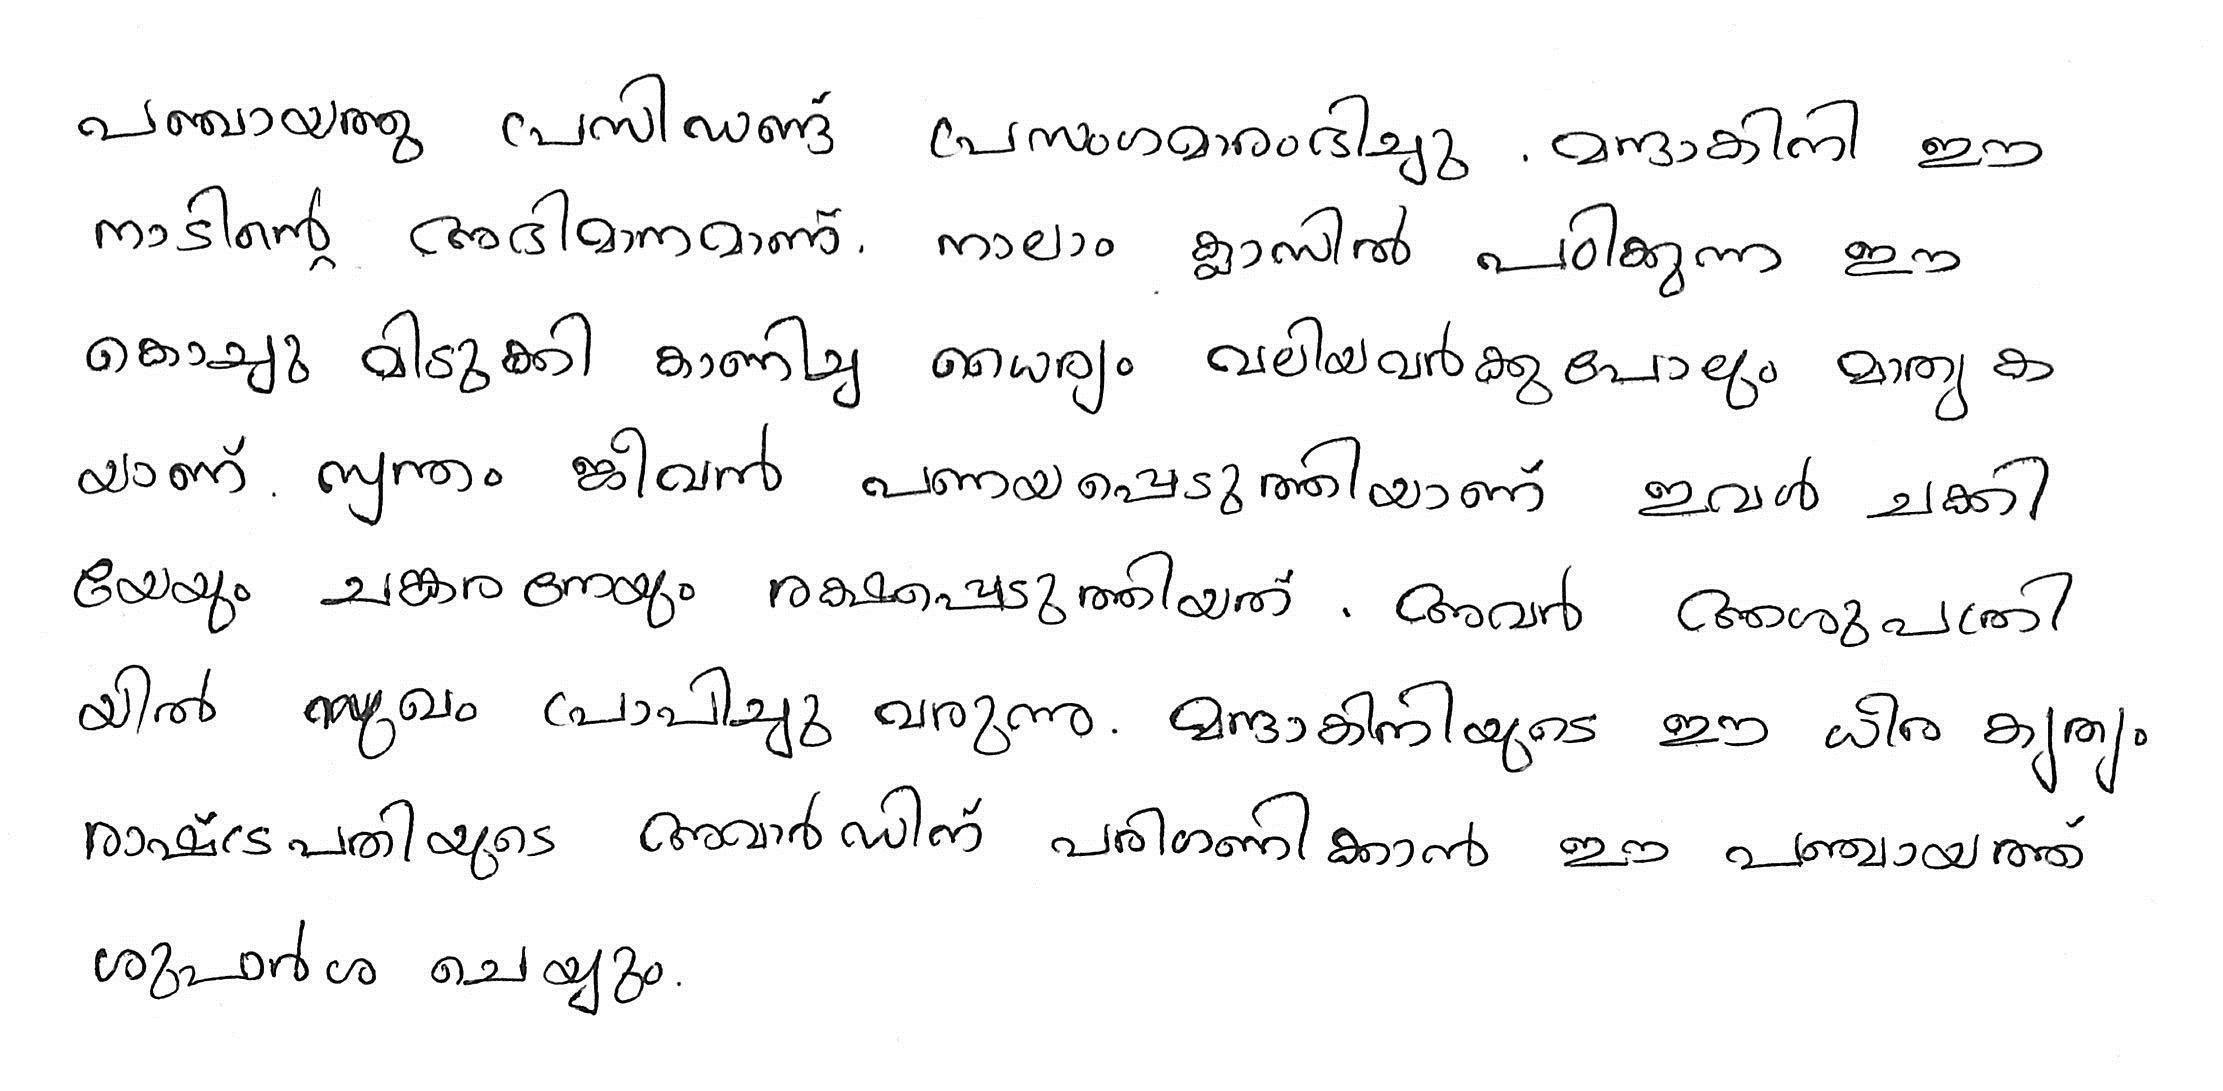 പഞ്ചായത്തു പ്രസിഡണ്ട് പ്രസംഗമാരംഭിച്ചു . മന്ദാകിനി ഈ
നാടിന്റെ അഭിമാനമാണ്. നാലാം ക്ലാസിൽ പഠിക്കുന്ന ഈ
കൊച്ചു മിടുക്കി കാണിച്ച ധൈര്യം വലിയവർക്കുപോലും മാതൃക
യാണ്. സ്വന്തം ജീവൻ പണയപ്പെടുത്തിയാണ് ഇവൾ ചക്കി
യേയും ചങ്കരനേയും രക്ഷപ്പെടുത്തിയത് . അവർ ആശുപത്രി
യിൽ സുഖം പ്രാപിച്ചു വരുന്നു. മന്ദാകിനിയുടെ ഈ ധീര കൃത്യം
രാഷ്ട്രപതിയുടെ അവാർഡിന് പരിഗണിക്കാൻ ഈ പഞ്ചായത്ത്
ശുപാർശ ചെയ്യും.